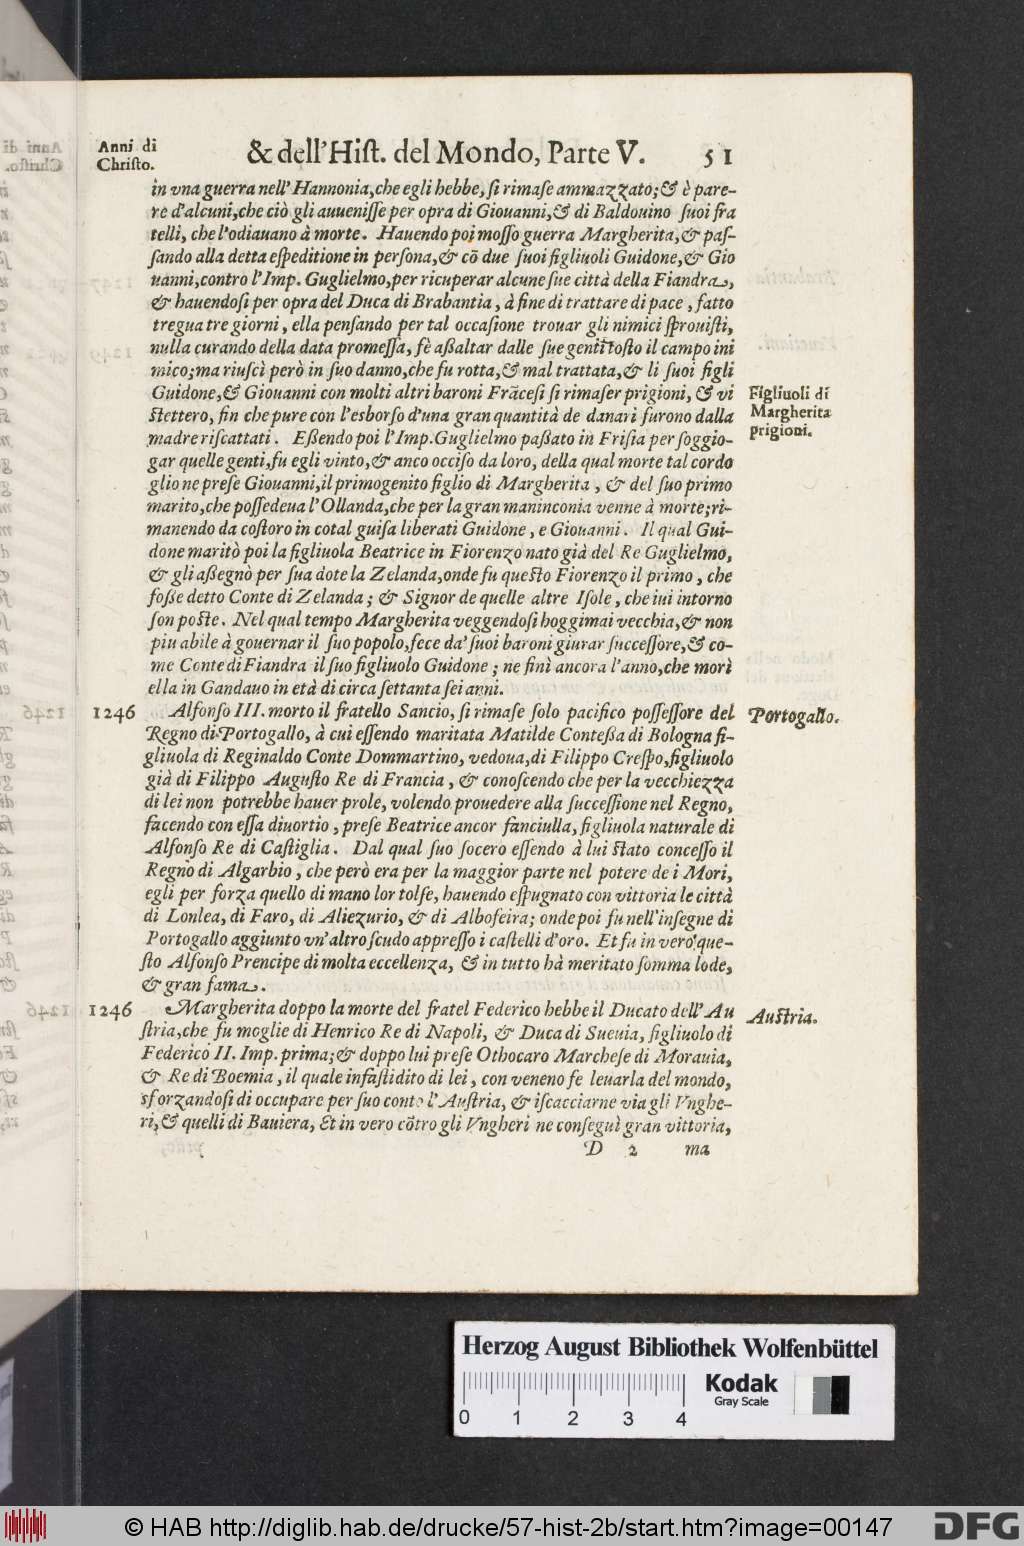 Anni di
Chriſto.
& dell'Hiſt. del Mondo, Parte V. 51
in vna guerra nell'Hannonia,che egli hebbe, ſi rimaſe ammazzato;& è pare-
re d'alcuni,che ciò gli auueniſſe per opra di Giouanni,& di Baldouino ſuoi fra
telli, che l'odiauano à morte. Hauendo poi moſſo guerra Margherita,& paſ-
ſando alla detta eſpeditione in perſona,& cō due ſuoi figliuoli Guidone,& Gio
uanni,contro l'Imp. Guglielmo,per ricuperar alcune ſue città della Fiandra,
& hauendoſi per opra del Duca di Brabantia, à fine di trattare di pace, fatto
tregua tre giorni, ella penſando per tal occaſione trouar gli nimici ſprouiſti,
nulla curando della data promeſſa, fè aßaltar dalle ſue genti toſto il campo ini
mico;ma riuſcì però in ſuo danno,che fu rotta,& mal trattata,& li ſuoi figli
Guidone,& Giouanni con molti altri baroni Frāceſi ſi rimaſer prigioni, & vi
ſtettero, fin che pure con l'esborſo d'una gran quantità de danari furono dalla
madre riſcattati. Eßendo poi l'Imp.Guglielmo paßato in Friſia per ſoggio-
gar quelle genti,fu egli vinto,& anco occiſo da loro, della qual morte tal cordo
glio ne preſe Giouanni,il primogenito figlio di Margherita, & del ſuo primo
marito,che poſſedeua l'Ollanda,che per la gran maninconia venne à morte;ri-
manendo da coſtoro in cotal guiſa liberati Guidone, e Giouanni. Il qual Gui-
done maritò poi la figliuola Beatrice in Fiorenzo nato già del Re Guglielmo,
& gli aßegnò per ſua dote la Zelanda,onde fu queſto Fiorenzo il primo, che
foße detto Conte di Zelanda; & Signor de quelle altre Iſole, che iui intorno
ſon poſte. Nel qual tempo Margherita veggendoſi hoggimai vecchia,& non
piu abile à gouernar il ſuo popolo,fece da' ſuoi baroni giurar ſucceſſore,& co-
me Conte di Fiandra il ſuo figliuolo Guidone; ne finì ancora l'anno,che morì
ella in Gandauo in età di circa ſettanta ſei anni.
Figliuoli di
Margherita
prigioni.
1246 Alfonſo III. morto il fratello Sancio, ſi rimaſe ſolo pacifico poſſeſſore del
Regno di Portogallo, à cui eſſendo maritata Matilde Conteßa di Bologna fi-
gliuola di Reginaldo Conte Dommartino, vedoua,di Filippo Creſpo,figliuolo
già di Filippo Auguſto Re di Francia, & conoſcendo che per la vecchiezza
di lei non potrebbe hauer prole, volendo prouedere alla ſucceſſione nel Regno,
facendo con eſſa diuortio, preſe Beatrice ancor fanciulla, figliuola naturale di
Alfonſo Re di Caſtiglia. Dal qual ſuo ſocero eſſendo à lui ſtato conceſſo il
Regno di Algarbio, che però era per la maggior parte nel potere de i Mori,
egli per forza quello di mano lor tolſe, hauendo eſpugnato con vittoria le città
di Lonlea, di Faro, di Aliezurio, & di Albofeira; onde poi fu nell'inſegne di
Portogallo aggiunto vn'altro ſcudo appreſſo i caſtelli d'oro. Et fu in vero que-
ſto Alfonſo Prencipe di molta eccellenza, & in tutto hà meritato ſomma lode,
& gran fama.
Portogallo.
1246 Margherita doppo la morte del fratel Federico hebbe il Ducato dell'Au
ſtria,che fu moglie di Henrico Re di Napoli, & Duca di Sueuia, figliuolo di
Federico II. Imp. prima;& doppo lui preſe Othocaro Marcheſe di Morauia,
& Re di Boemia, il quale infaſtidito di lei, con veneno fe leuarla del mondo,
sforzandoſi di occupare per ſuo conto l'Auſtria, & iſcacciarne via gli Vnghe-
ri,& quelli di Bauiera, Et in vero cōtro gli Vngheri ne conſeguì gran vittoria,
Auſtria.
D 2 ma
Herzog August Bibliothek Wolfenbüttel
0 1 2 3 4
Kodak
Gray Scale
© HAB http://diglib.hab.de/drucke/57-hist-2b/start.htm?image=00147
DFG